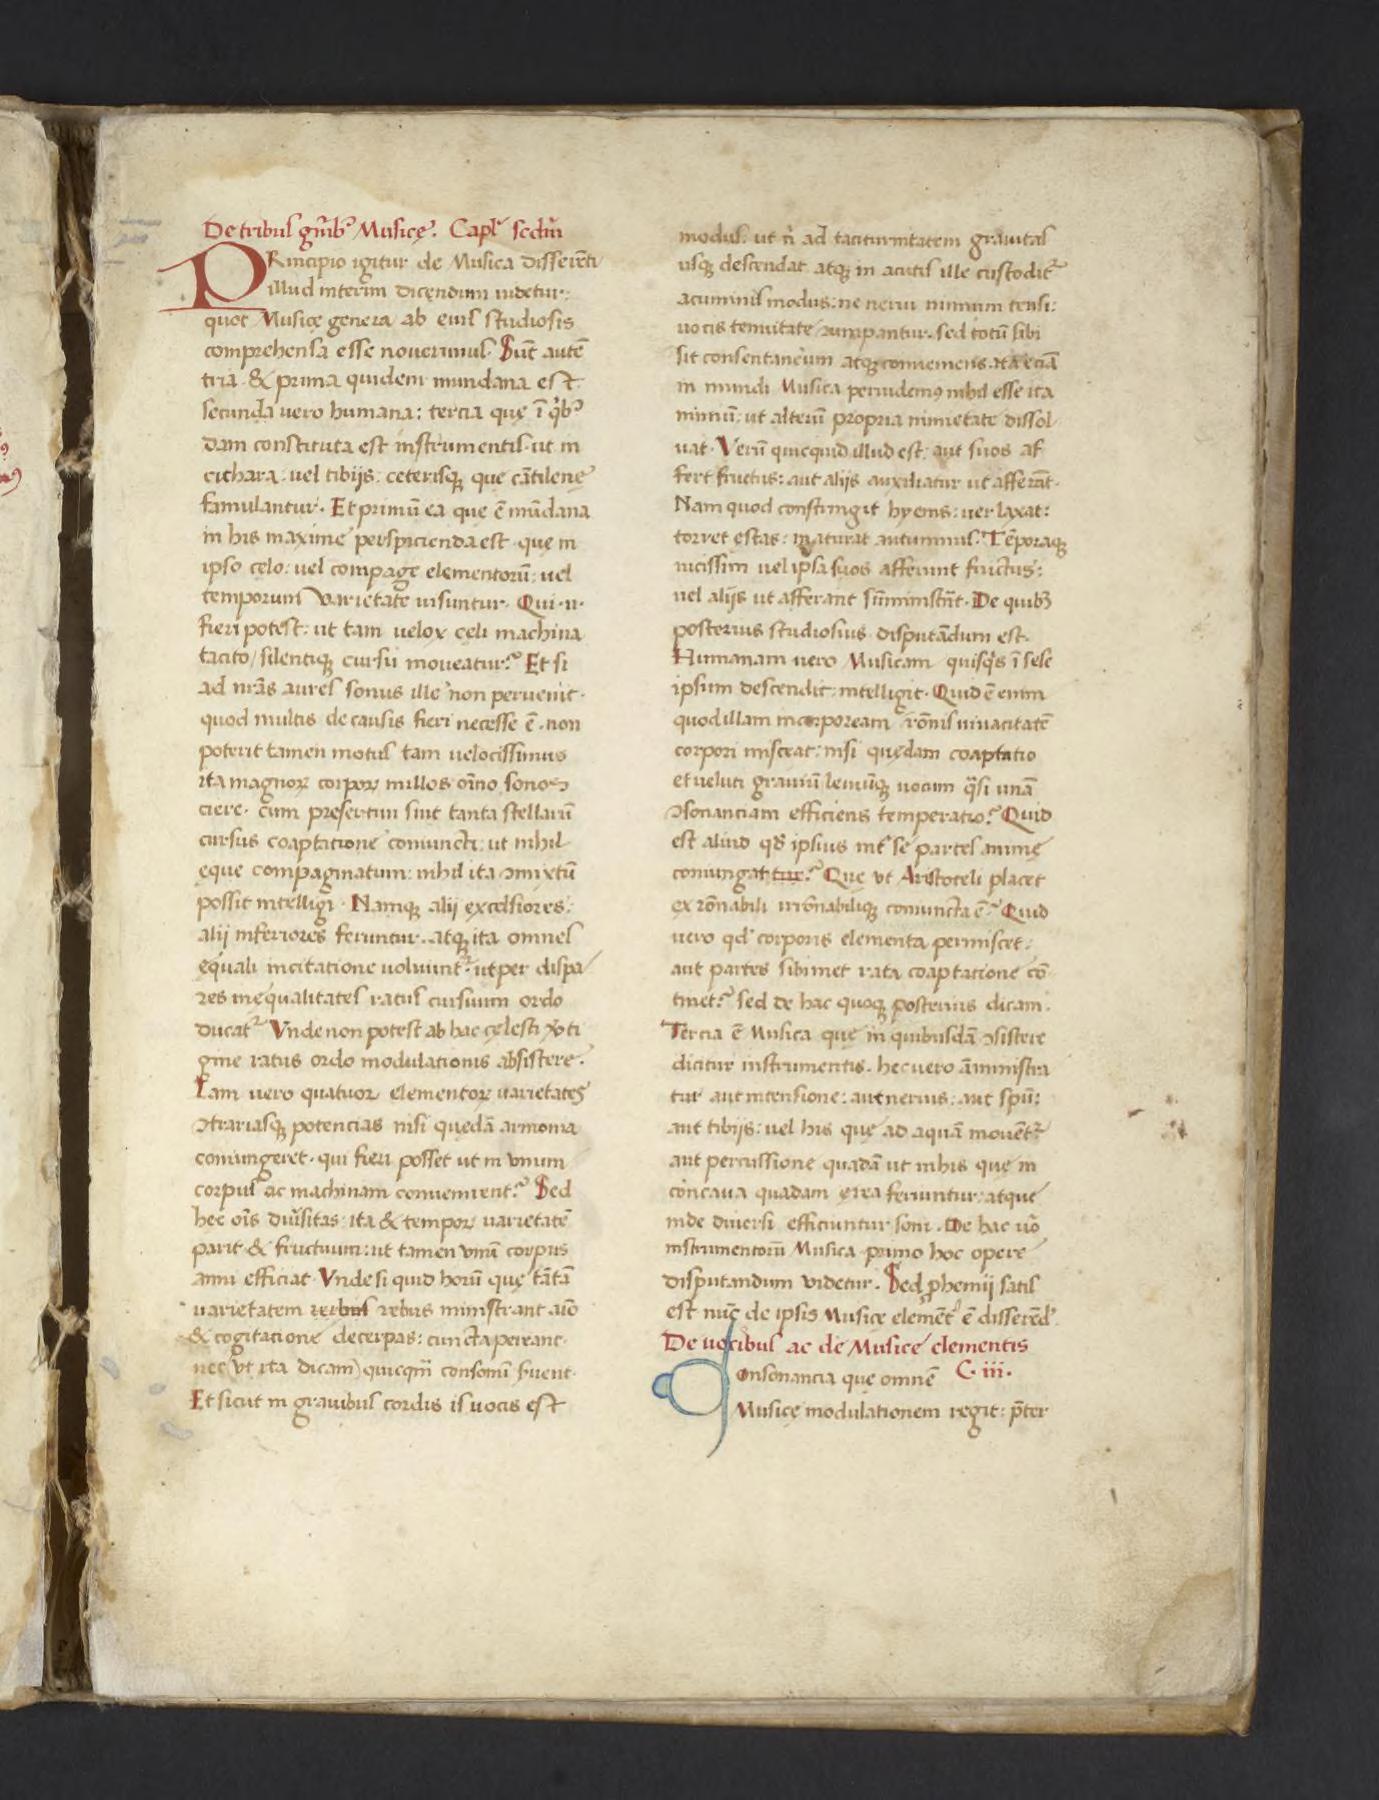 De tribus gn̄ibꝰ Musicę. Capl' scdm̄
PRincipio igitur de Musica disserēti
illud interim dicendum uidetur:
quot Musicę genera ab eius studiosis
comprehensa esse nouerimus. Sūt autē
tria. & prima quidem mundana est.
secunda uero humana: tercia quę ī q̇bꝰ
dam constituta est instrumentis. ut in
cithara. uel tibijs: ceterisqꝫ que cātilenę
famulantur. Et primū ea que ē mūdana
in his maxime perspicienda est. quę in
ipso cęlo: uel compage elementorū: uel
temporum varietate uisuntur. Qui .n.
fieri potest: ut tam uelox cęli machina
tacito/ silentiqꝫ cursu moueatur? Et si
ad nr̄as aures sonus ille non peruenit.
quod multis de causis fieri necesse ē. non
poterit tamen motus tam uelocissimus
ita magnoꝝ corpoꝝ nullos oīno sonos
ciere. cum presertim sint tanta stellarū
cursus coaptatione coniuncti: ut nihil
ęque compaginatum: nihil ita ꝯmixtū
possit intelligi. Namqꝫ alij excelsiores:
alij inferiores feruntur. atqꝫ ita omnes
equali incitatione uoluunt᷑. ut per dispa
res inęqualitates ratus cursuum ordo
ducat᷑ Vnde non potest ab hac cęlesti v̄ti
gine ratus ordo modulationis absistere.
Iam uero quatuor elementoꝝ uarietates
ꝯtrariasqꝫ potencias nisi quędā armonia
coniungeret. qui fieri posset ut in vnum
corpus ac machinam conuenirent? Sed
hec oīs diu̾sitas: ita & tempoꝝ uarietatē
parit & fructuum: ut tamen vnū corpus
anni efficiat. Vnde si quid horū quę tātā
uarietatem rerbus rebus ministrant aīo
& cogitatione decerpas: cuncta pereant.
nec (vt ita dicam) quicqm̄ consonū fuerit.
Et sicut in grauibus cordis is uocis est
modus. ut n̄ ad taciturnitatem grauitas
usqꝫ descendat. atqꝫ in acutis ille custodit᷑
acuminis modus: ne nerui nimium tensi:
uocis tenuitate rumpantur. sed totū sibi
sit consentaneum atqꝫ conueniens. ita eciā
in mundi Musica peruidemꝰ nihil esse ita
nimiū: ut alterū propria nimietate dissol
uat. Verū quicquid illud est: aut suos af
fert fructus: aut alijs auxiliatur ut afferāt.
Nam quod constringit hyems: uer laxat:
torret ęstas: maturat autumnus. Tēporaqꝫ
uicissim uel ipsa suos afferunt fructus:
uel alijs ut afferant sūministrāt. De quibꝫ
posterius studiosius disputādum est.
Humanam uero Musicam quisq̇s ī sese
ipsum descendit: intelligit. Quid ē enim
quod illam incorpoream rōnis uiuacitatē
corpori misceat: nisi quędam coaptatio
et ueluti grauiū leuiūqꝫ uocum q̄si unā
ꝯsonanciam efficiens temperatio? Quid
est aliud qd̾ ipsius int̾ se partes animę
coniungat tur? Quę vt Aristoteli placet
ex rōnabili irrōnabiliqꝫ coniuncta ē? Quid
uero qd̾ corporis elementa permiscet:
aut partes sibimet rata coaptatione cō
tinet? sed de hac quoqꝫ posterius dicam.
Tercia ē Musica quę in quibusdā ꝯsistere
dicitur instrumentis. hec uero āministra
tur aut intensione: aut neruis: aut spū:
aut tibijs: uel his quę ad aquā mouēt᷑
aut percussione quadā ut in his quę in
concaua quadam ęrea feriuntur: atque
inde diuersi efficiuntur soni. De hac uō
instrumentorū Musica primo hoc opere
disputandum videtur. Sed ꝓhemij satis
est nūc de ipsis Musicę elemēt' ē disserēd'.
De uocibus ac de Musice elementis
C. iii.
Consonancia que omnē
Musicę modulationem regit: p̄ter